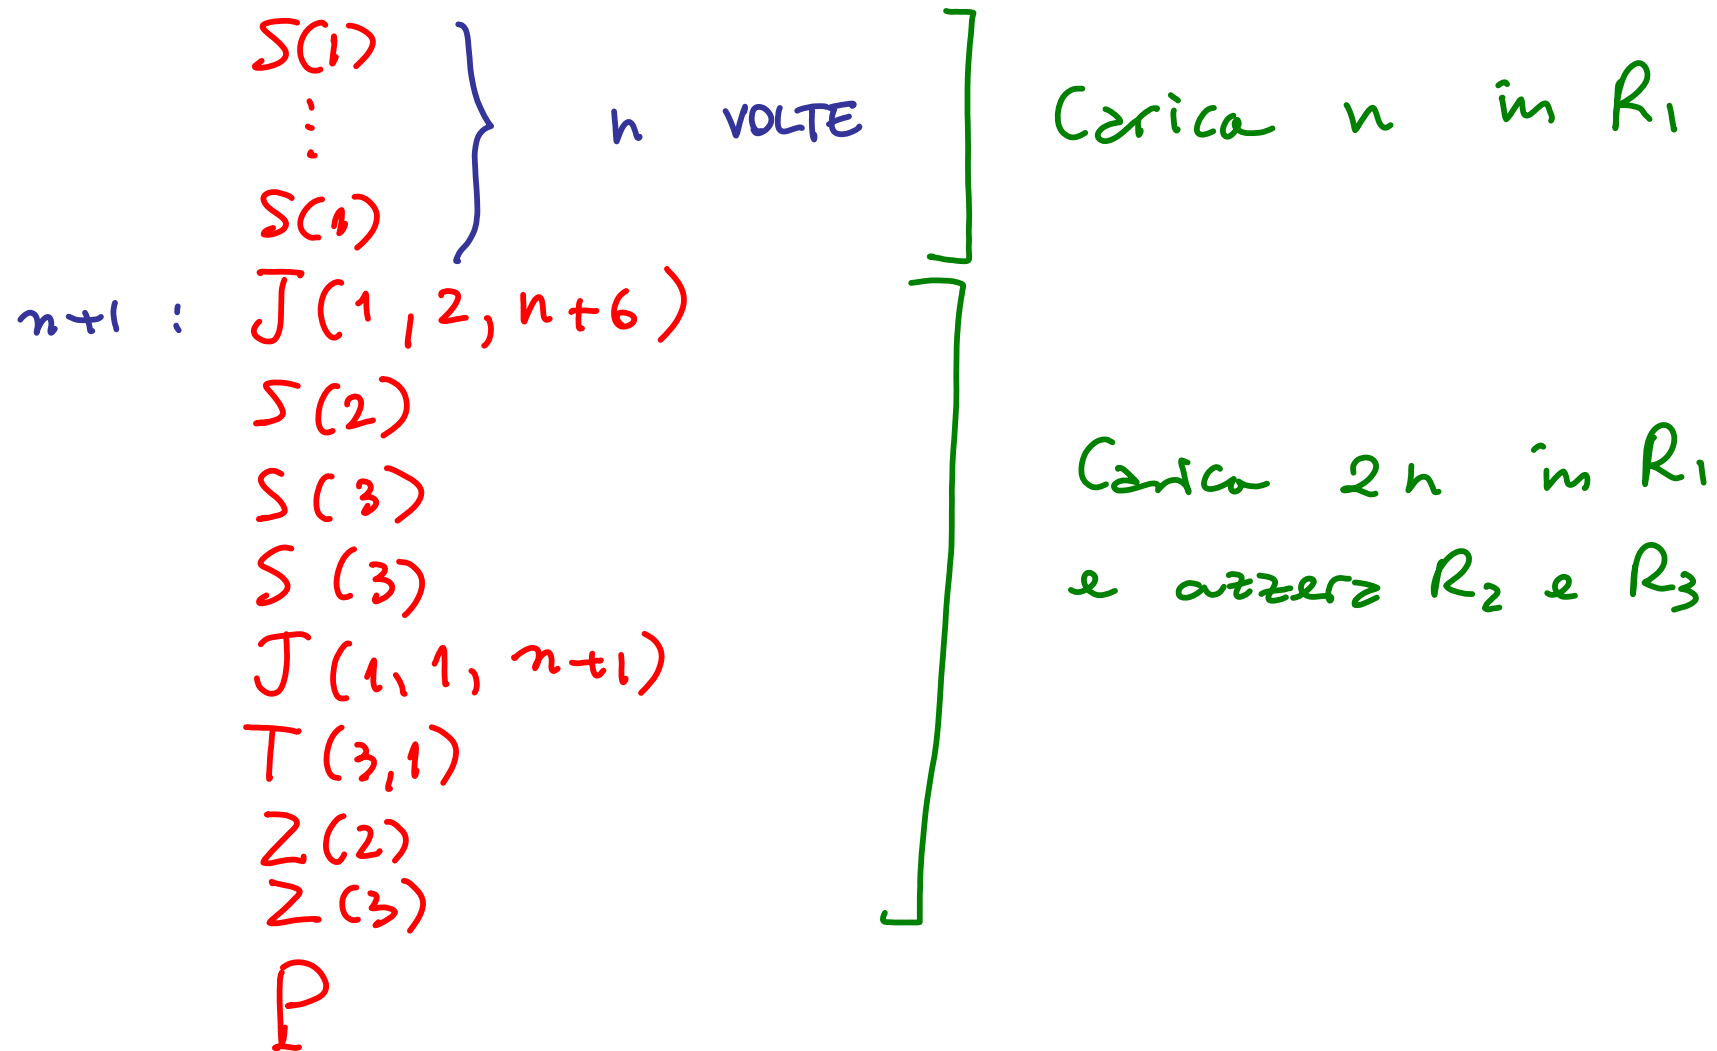 S(1)
⋮
S(1)
n VOLTE
Carica n in R1
n+1 : J(1,2,n+6)
S(2)
S(3)
S(3)
J(1,1,n+1)
T(3,1)
Z(2)
Z(3)
P
Carica 2n in R1
e azzera R2 e R3